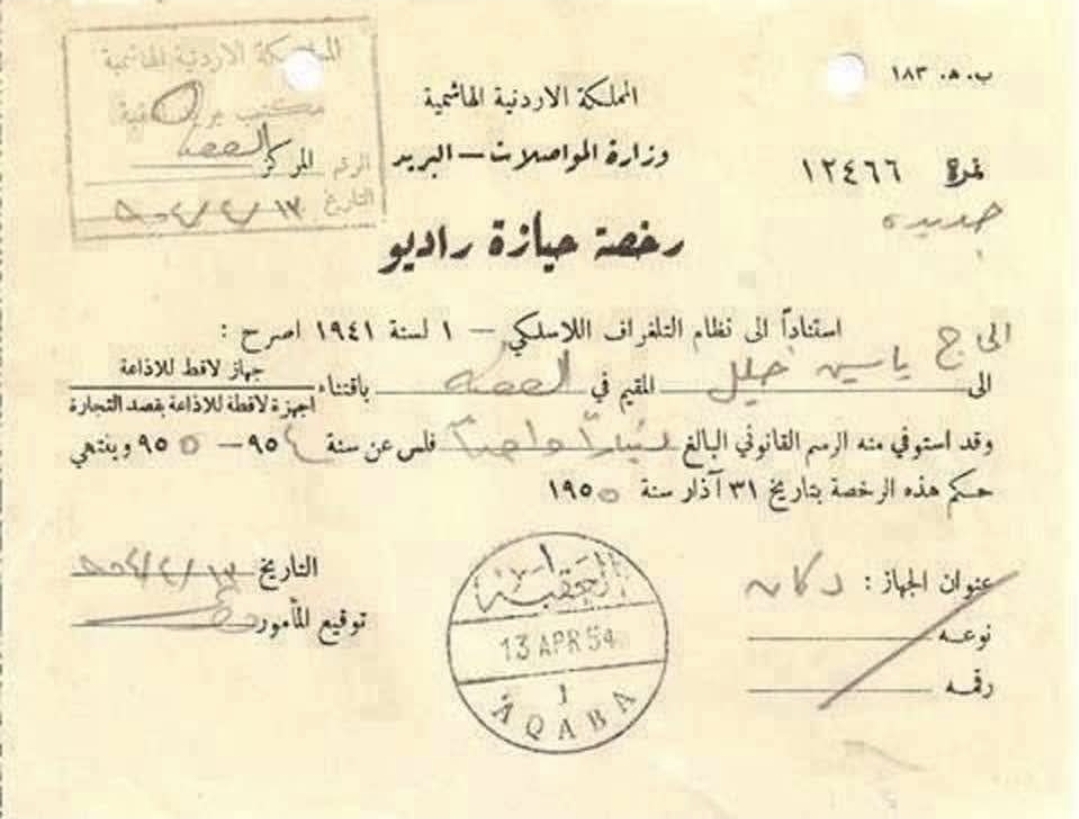 ب.ه. ١٨٣
المملكة الاردنية الهاشمية
المملكة الاردنية الهاشمية
مكتب بريد العقبة
وزارة المواصلات – البريد
نمرة ١٢٤٦٦
جديده
الرقم المركز العقبة
التاريخ ١٣/٤/٩٥٤
رخصة حيازة راديو
استناداً الى نظام التلغراف اللاسلكي – ١ لسنة ١٩٤١ اصرح :
الى الحاج ياسين خليل المقيم في العقبه باقتناء
جهاز لاقط للاذاعة
اجهزة لاقطة للاذاعة بقصد التجارة
وقد استوفي منه الرسم القانوني البالغ ديناراً واحداً فلس عن سنة ٩٥٤ – ٩٥٥ وينتهي
حكم هذه الرخصة بتاريخ ٣١ آذار سنة ١٩٥٥
عنوان الجهاز : دكانه
نوعه
رقمه
التاريخ ١٣/٤/٩٥٤
توقيع المأمور
العقبة ١
13 APR 54
1
AQABA